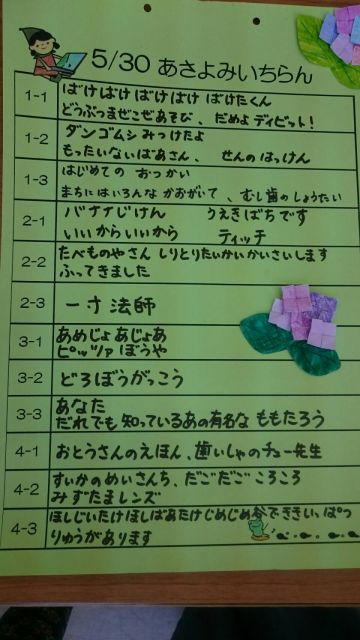 5/30 あさよみいちらん
1-1
ばけばけ ばけばけ ばけたくん
どうぶつまぜこぜあそび、だめよデイビット!
1-2
ダンゴムシみっけたよ
もったいないばあさん、せんのはっけん
1-3
はじめての おつかい
まちにはいろんな かおがいて、むし歯のしょうたい
2-1
バナナじけん うえきばちです
いいからいいから ティッチ
2-2
たべものやさん しりとりたいかいかいさいします
ふってきました
2-3
一寸法師
3-1
あめじょあじょあ
ピッツァぼうや
3-2
どろぼうがっこう
3-3
あなた
だれでも知っているあの有名な ももたろう
4-1
おとうさんのえほん、歯いしゃのチュー先生
4-2
すいかのめいさんち、だごだごころころ
みずたまレンズ
4-3
ほしじいたけほしばあたけじめじめ谷でききいっぱつ
りゅうがあります